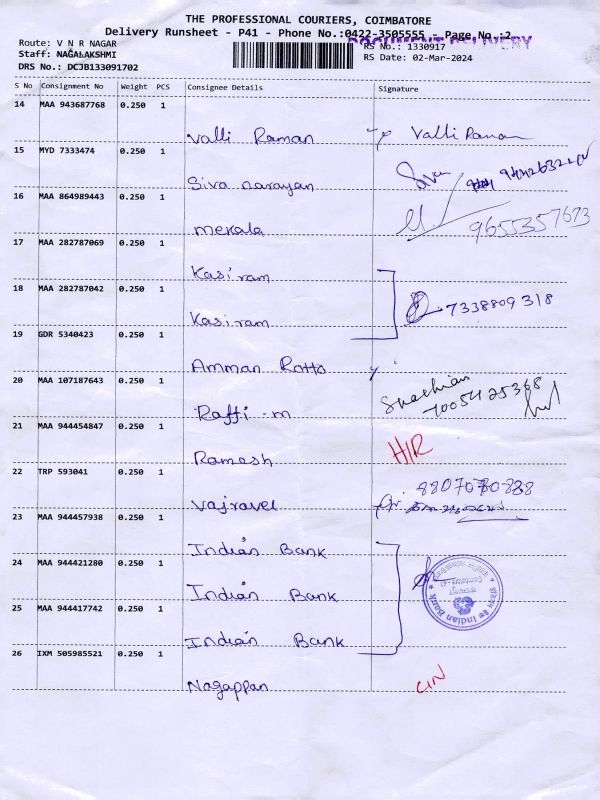 THE PROFESSIONAL COURIERS, COIMBATORE
Delivery Runsheet - P41 - Phone No.:0422-3505555 - Page No.:2
DOCUMENT DELIVERY
Route: V N R NAGAR
Staff: NAGALAKSHMI
DRS No.: DCJB133091702
RS No.: 1330917
RS Date: 02-Mar-2024
S No Consignment No Weight PCS Consignee Details Signature
14 MAA 943687768 0.250 1
Valli Raman Valli Raman
15 MYD 7333474 0.250 1
Siva narayan
16 MAA 864989443 0.250 1
mekala 9655357673
17 MAA 282787069 0.250 1
Kasi ram
18 MAA 282787042 0.250 1
Kasi ram 7338809318
19 GDR 5340423 0.250 1
Amman Rotto
20 MAA 107187643 0.250 1
Raffi - m
21 MAA 944454847 0.250 1
Ramesh H/R
22 TRP 593041 0.250 1
Vajravel
23 MAA 944457938 0.250 1
Indian Bank
24 MAA 944421280 0.250 1
Indian Bank
Indian Bank
25 MAA 944417742 0.250 1
Indian Bank
26 IXM 505985521 0.250 1
Nagappan C/N